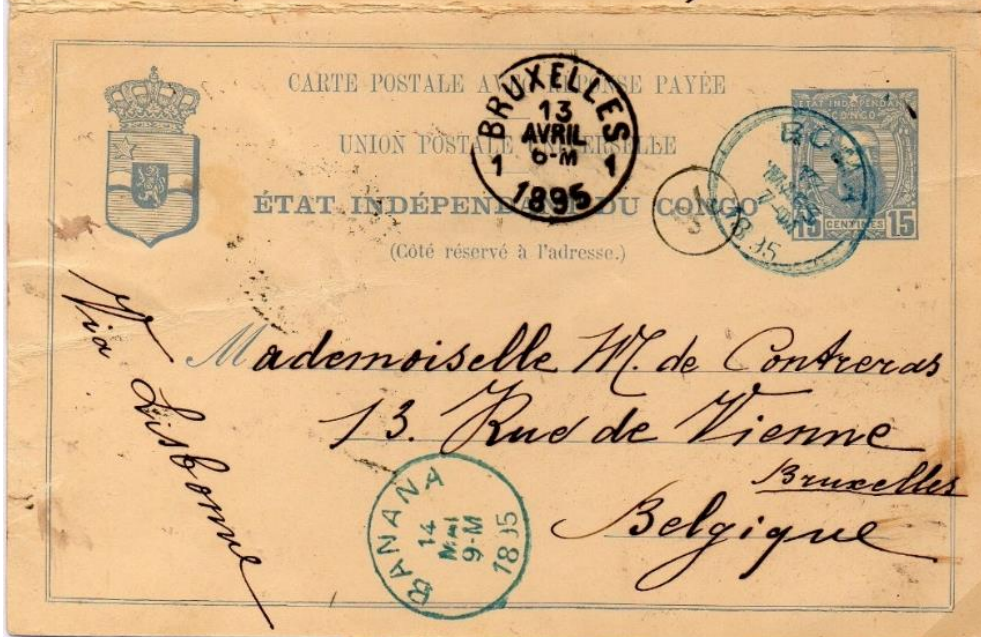 CARTE POSTALE AVEC RÉPONSE PAYÉE
UNION POSTALE UNIVERSELLE
ÉTAT INDÉPENDANT DU CONGO
(Côté réservé à l'adresse.)
BRUXELLES
13
AVRIL
6-M
1 1
1895
ETAT INDÉPENDANT
CONGO
15 CENTIMES 15
BOMA
18 95
Via Lisbonne
Mademoiselle M. de Contreras
13. Rue de Vienne
Bruxelles
Belgique
BANANA
14
9-M
18 95